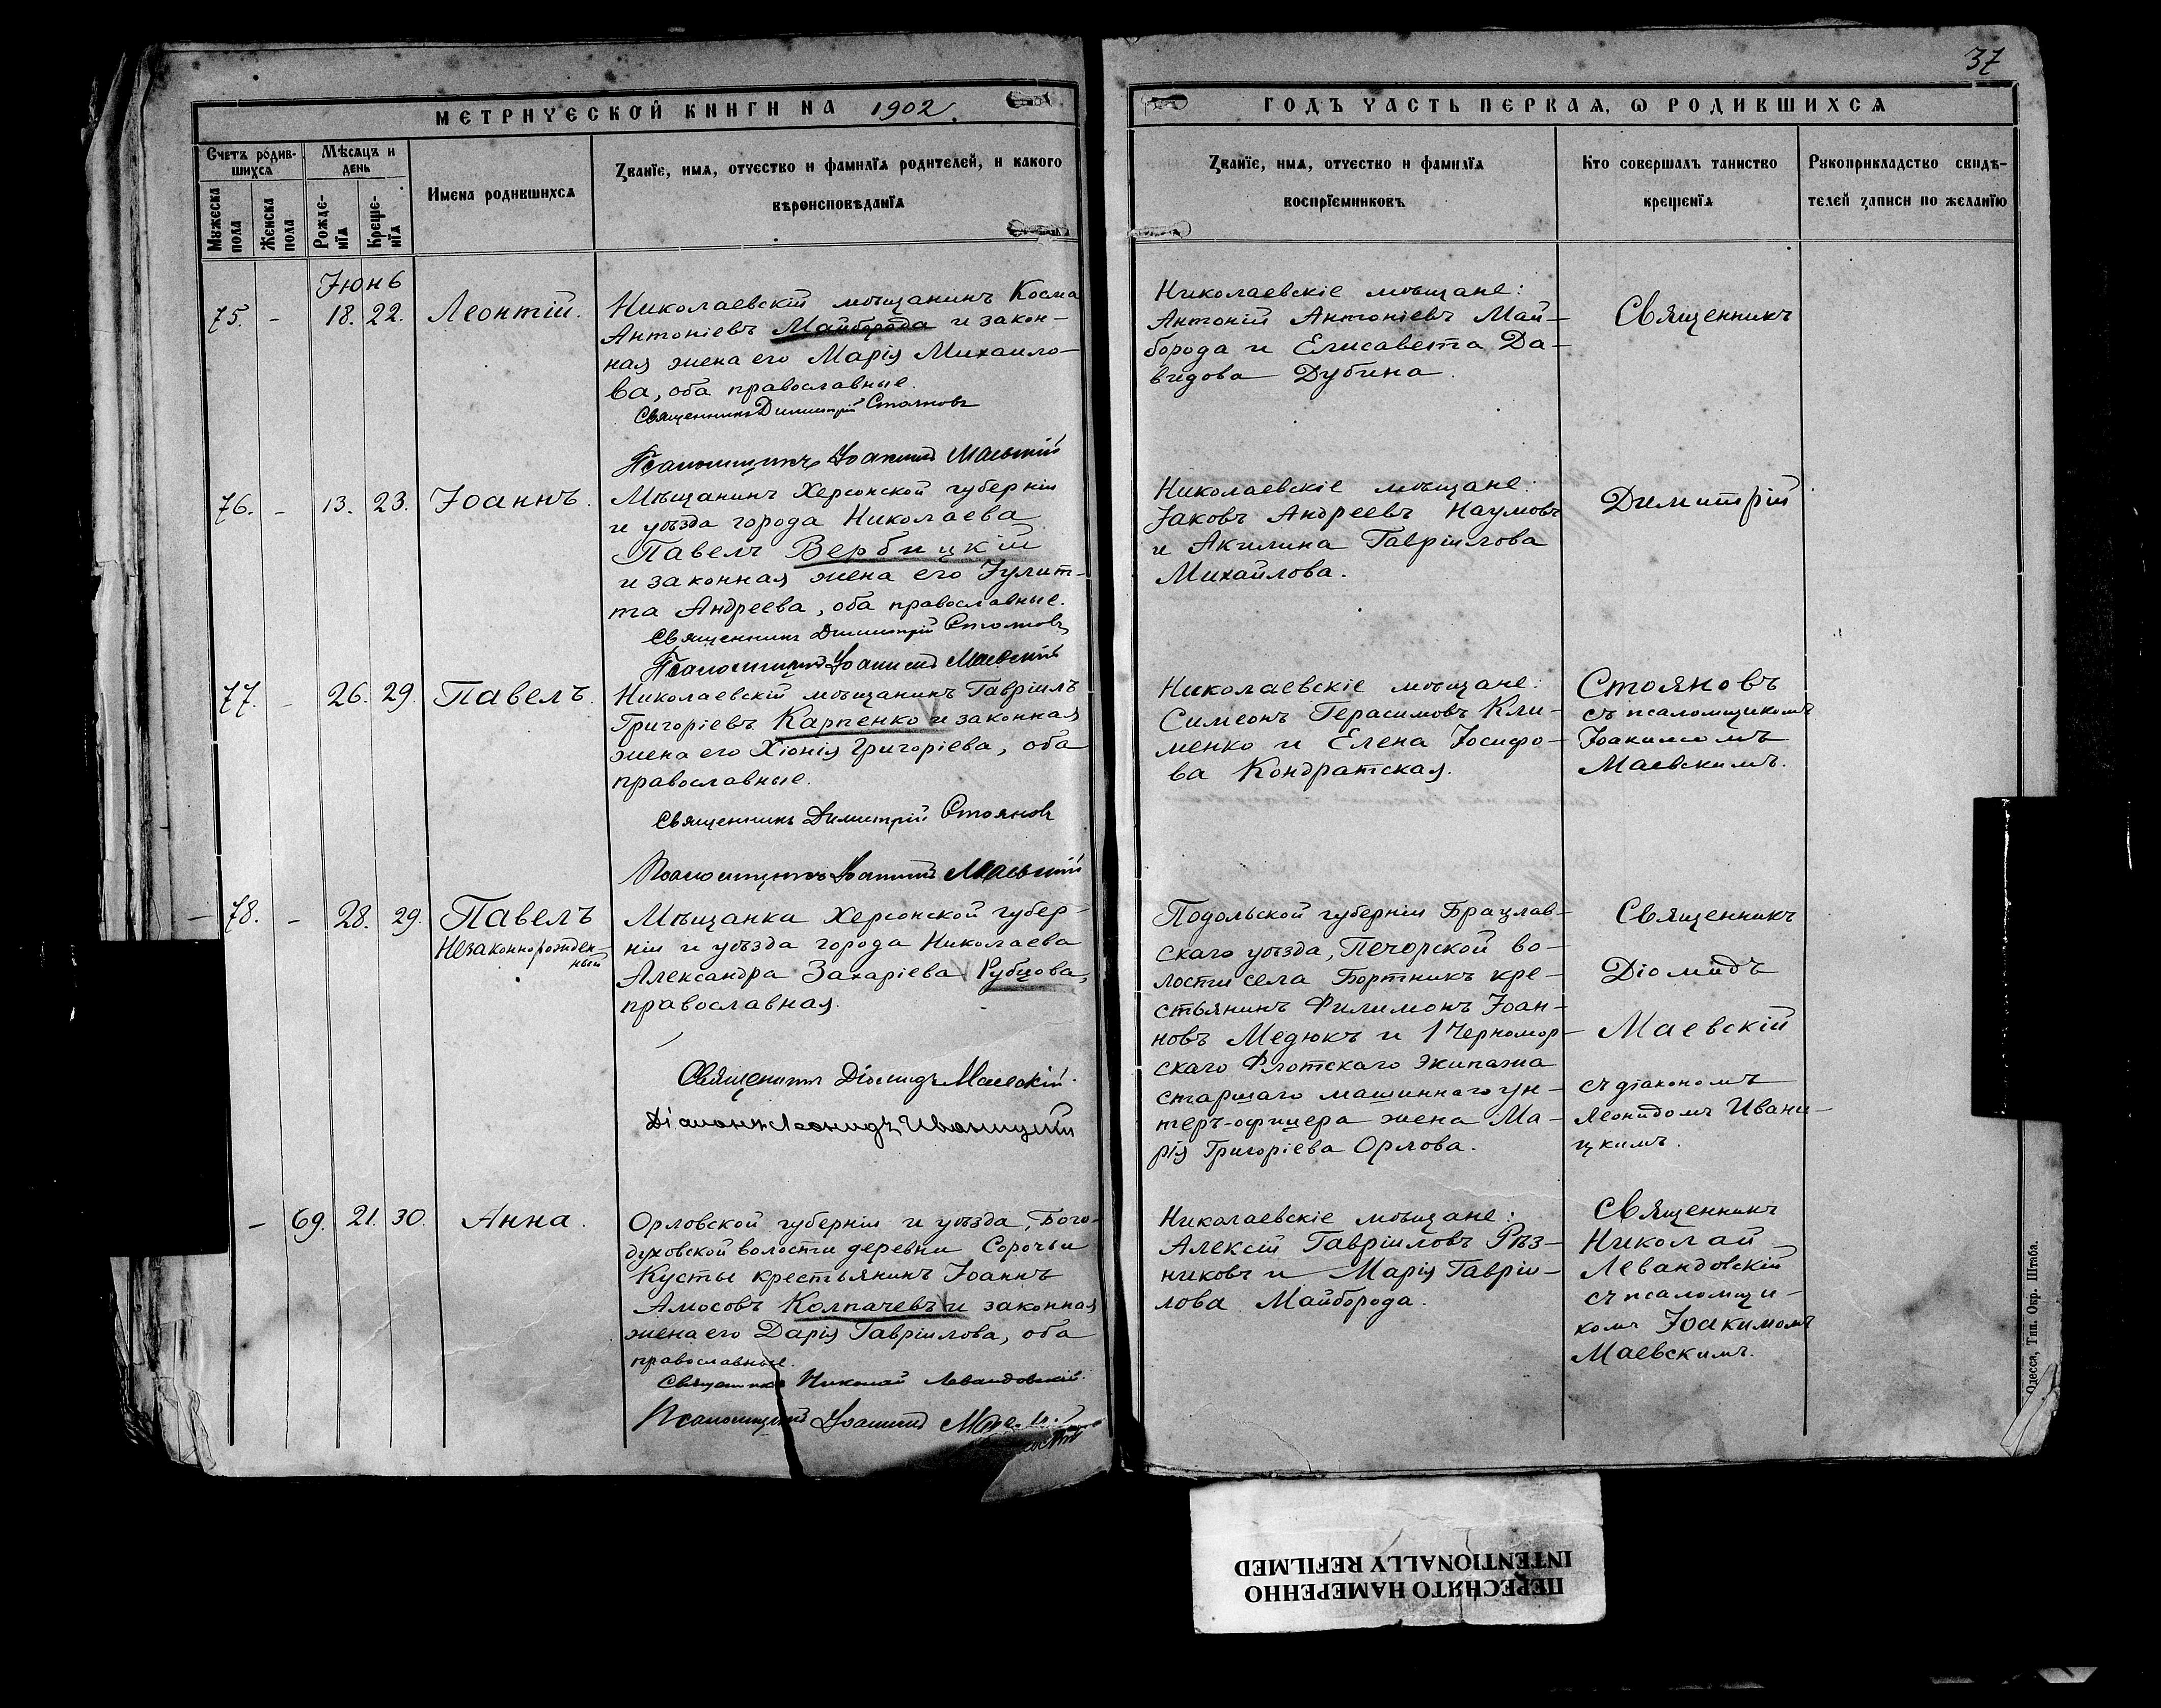 37
МЕТРИЧЕСКОЙ КНИГИ НА 1902.
ГОДЪ ЧАСТЬ ПЕРВАЯ, Ѡ РОДИВШИХСѦ
Счетъ родив-
шихсѧ
Мѣсѧцъ и
день
Мꙋжеска
пола
Женска
пола
Рожде-
нїѧ
Креще-
нїѧ
Имена родившихсѧ
Званїе, имѧ, отчество и фамилїѧ родителей, и какого
вѣроисповѣданїѧ
Званїе, имѧ, отчество и фамилїѧ
воспрїемниковъ
Кто совершалъ таинство
крещенїѧ
Рꙋкоприкладство свидѣ-
телей записи по желанїю
Іюнь
75. - 18. 22. Леонтій.
Николаевскій мѣщанинъ Косма
Антоніевъ Майборода и закон-
ная жена его Марія Михаило-
ва, оба православные.
Священникъ Димитрій Стояновъ
Псаломщикъ Іоакимъ Маевскій
Николаевскіе мѣщане:
Антоній Антоніевъ Май-
борода и Елисавета Да-
видова Дубина.
Священникъ
76. - 13. 23. Іоаннъ.
Мѣщанинъ Херсонской губерніи
и уѣзда города Николаева
Павелъ Вербицкій
и законная жена его Іулит-
та Андреева, оба православные.
Священникъ Димитрій Стояновъ
Псаломщикъ Іоакимъ Маевскій
Николаевскіе мѣщане:
Іаковъ Андреевъ Наумовъ
и Акилина Гавріилова
Михайлова.
Димитрій
77. - 26. 29. Павелъ.
Николаевскій мѣщанинъ Гавріилъ
Григоріевъ Карпенко и законная
жена его Хіонія Григоріева, оба
православные.
Священникъ Димитрій Стояновъ
Псаломщикъ Іоакимъ Маевскій
Николаевскіе мѣщане:
Симеонъ Герасимовъ Кли-
менко и Елена Іосифо-
ва Кондратская.
Стояновъ
съ псаломщикомъ
Іоакимомъ
Маевскимъ.
- 78. - 28. 29. Павелъ
Незаконнорожден-
ный
Мѣщанка Херсонской губер-
ніи и уѣзда города Николаева
Александра Захаріева Рубцова,
православная.
Священникъ Діомидъ Маевскій.
Діаконъ Леонидъ Иваницкій
Подольской губерніи Брацлав-
скаго уѣзда, Печорской во-
лости села Бортникъ кре-
стьянинъ Филимонъ Іоан-
новъ Медюкъ и 1 Черномор-
скаго Флотскаго Экипажа
старшаго машиннаго ун-
теръ-офицера жена Ма-
рія Григоріева Орлова.
Священникъ
Діомидъ
Маевскій
съ діакономъ
Леонидомъ Ивани-
цкимъ.
- 69. 21. 30. Анна.
Орловской губерніи и уѣзда, Бого-
духовской волости деревни Сорочьи
Кусты крестьянинъ Іоаннъ
Амосовъ Колпачевъ и законная
жена его Дарія Гавріилова, оба
православные.
Священникъ Николай Левандовскій.
Псаломщикъ Іоакимъ
Николаевскіе мѣщане:
Алексій Гавріиловъ Рѣз-
никовъ и Марія Гавріи-
лова Майборода.
Священникъ
Николай
Левандовскій
съ псаломщи-
комъ Іоакимомъ
Маевскимъ.
Одесса, Тип. Окр. Штаба.
ПЕРЕСНЯТО НАМЕРЕННО
INTENTIONALLY REFILMED